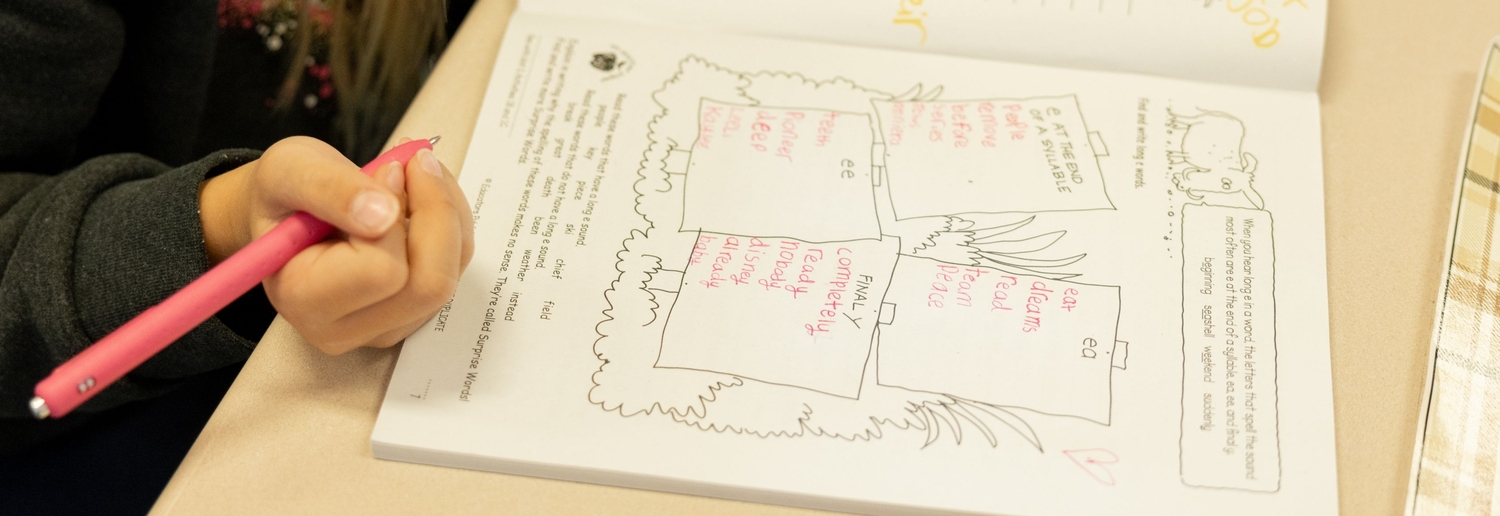 When you hear long e in a word, the letters that spell the sound
most often are e at the end of a syllable, ea, ee, and final y.
beginning seashell weekend suddenly
Find and write long e words.
e AT THE END
OF A SYLLABLE
people
remove
before
series
ea
eat
dreams
read
team
peace
ee
teen
Pioneer
deep
FINAL Y
completely
ready
nobody
disney
already
baby
Read these words that have a long e sound.
people key piece ski chief field
Read these words that do not have a long e sound.
break great death been weather instead
Explain in writing why the spelling of these words makes no sense. They're called Surprise Words!
Find and write more Surprise Words.
7